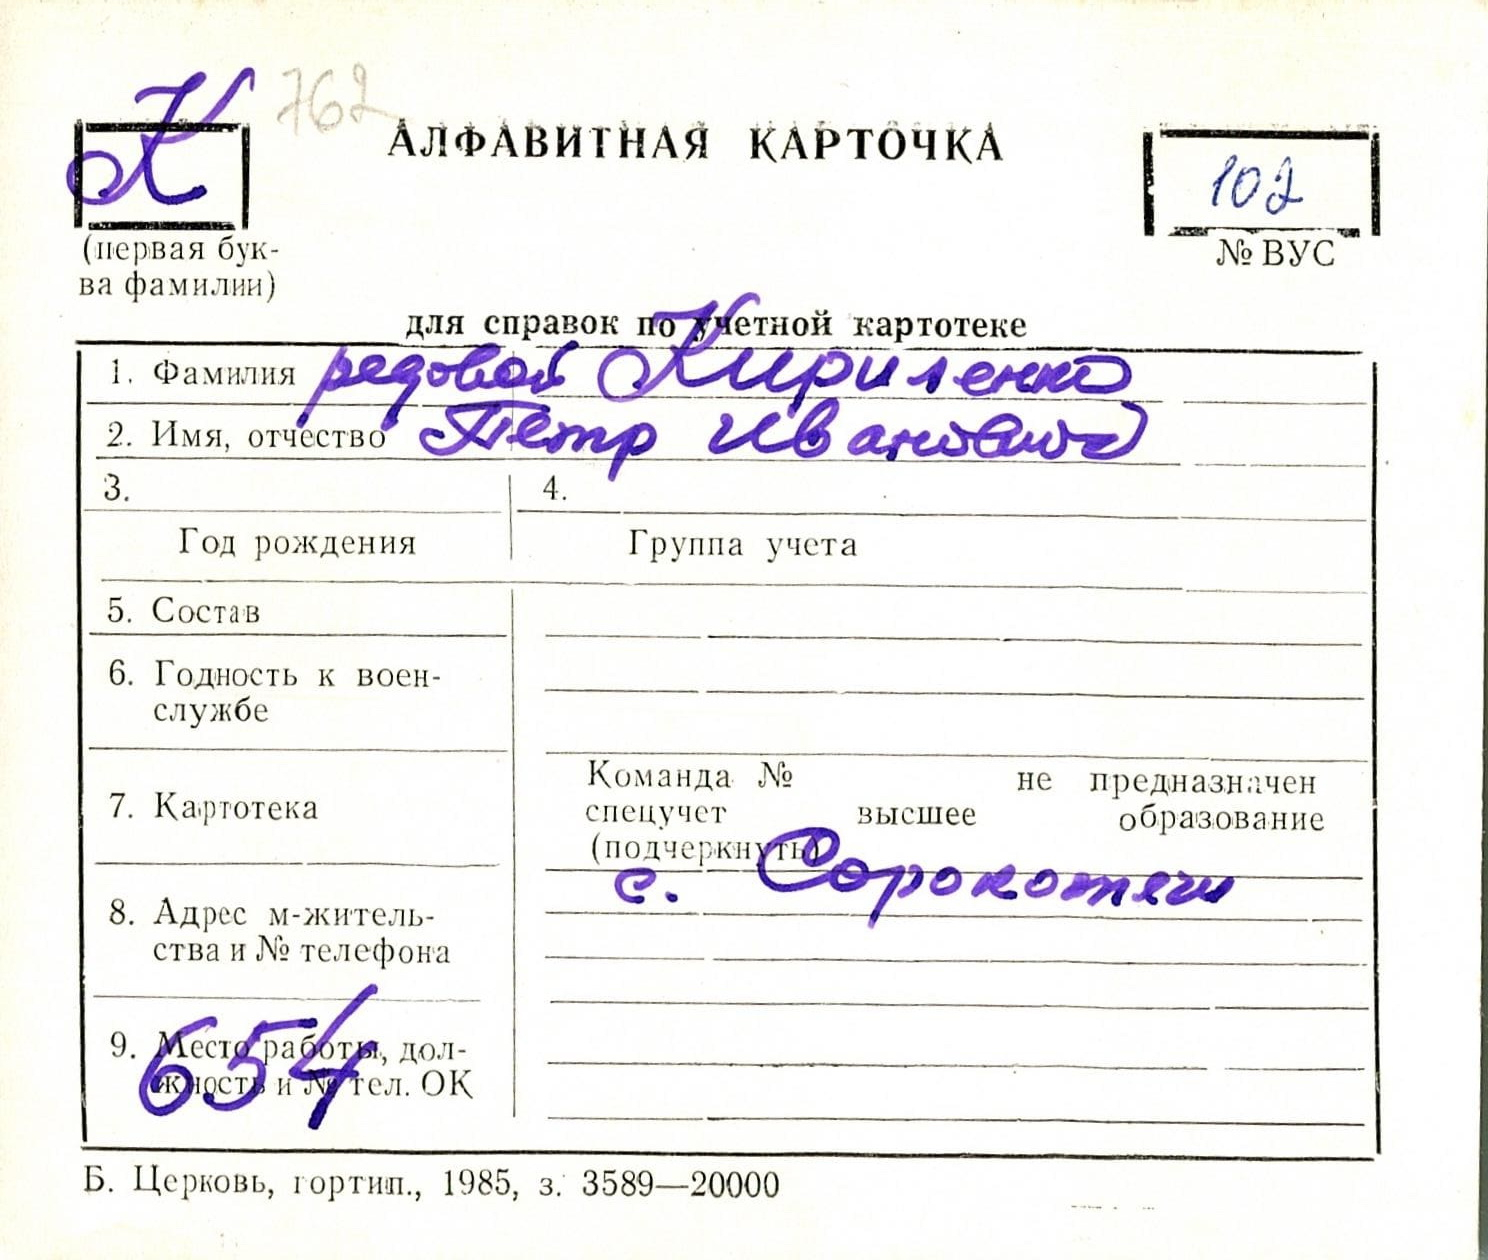 К 762
АЛФАВИТНАЯ КАРТОЧКА
102
(первая бук-
ва фамилии)
№ ВУС
для справок по учетной картотеке
1. Фамилия редовой Кириленко
2. Имя, отчество Петр Иванович
3.
4.
Год рождения
Группа учета
5. Состав
6. Годность к воен-
службе
7. Картотека
Команда № не предназначен
спецучет высшее образование
(подчеркнуть)
8. Адрес м-житель-
ства и № телефона
с. Сорокотяги
9. Место работы, дол-
жность и № тел. ОК
654
Б. Церковь, гортип., 1985, з. 3589—20000